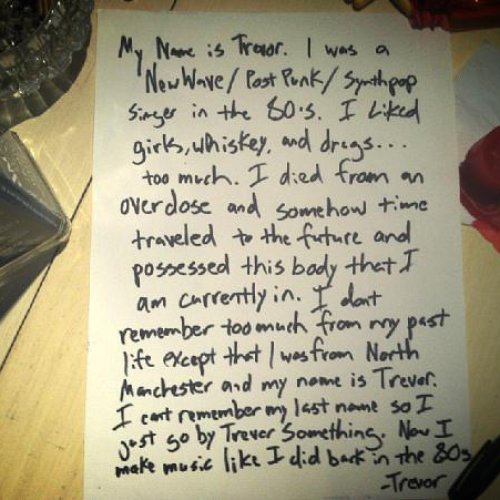 My Name is Trevor. I was a
New Wave/Post Punk/Synthpop
Singer in the 80's. I Liked
girls, whiskey, and drugs...
too much. I died from an
overdose and somehow time
traveled to the future and
possessed this body that I
am currently in. I dont
remember too much from my past
life except that I was from North
Manchester and my name is Trevor.
I cant remember my last name so I
just go by Trevor Something. Now I
make music like I did back in the 80s
-Trevor